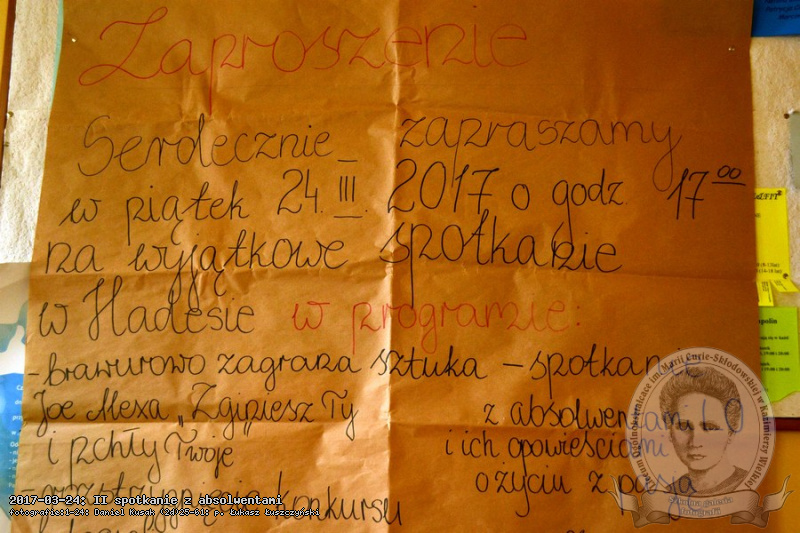 Zaproszenie
Serdecznie zapraszamy
w piątek 24.III.2017 o godz. 17⁰⁰
na wyjątkowe spotkanie
w Hadesie w programie:
- brawurowo zagrana sztuka
Joe Alexa „Zginiesz Ty
i pchły Twoje
- spotkanie
z absolwentami LO
i ich opowieściami
o życiu z pasją
konkursu
2017-03-24: II spotkanie z absolwentami
fotografie:1-24: Daniel Rusak (24/25-61: p. Łukasz Łuszczyński
Liceum Ogólnokształcące im. Marii Curie-Skłodowskiej w Kazimierzy Wielkiej
Szkolna galeria
fotografii